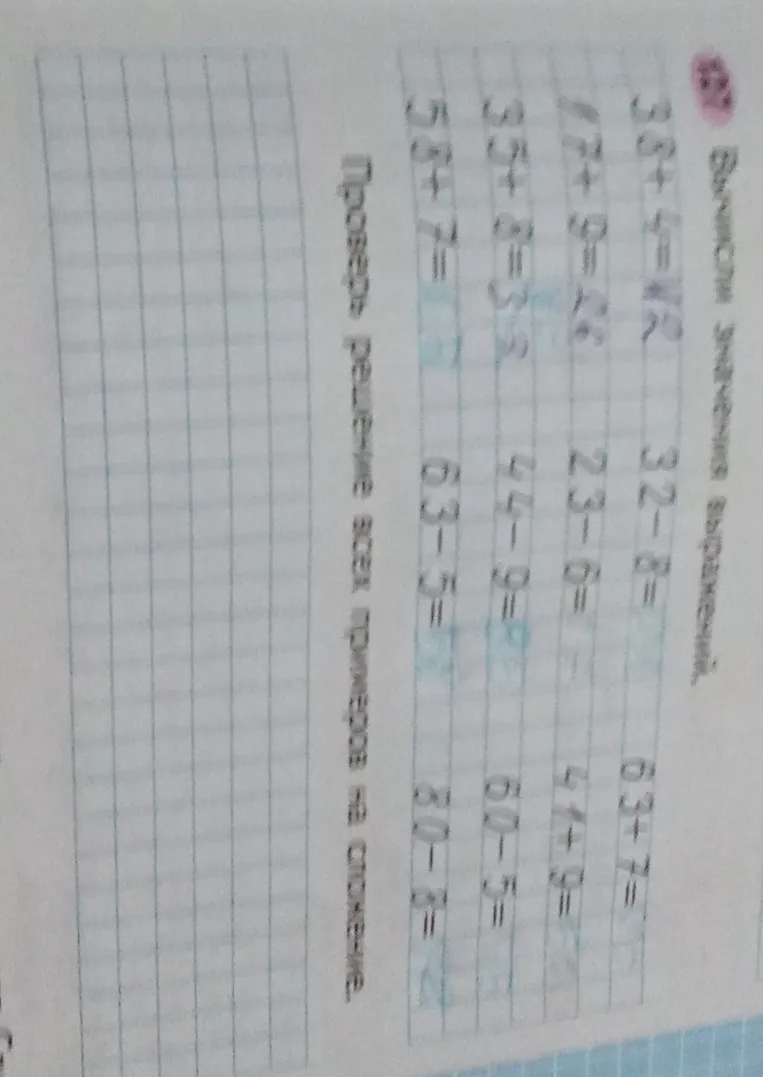 127 Вычисли значения выражений.
38+4=42 32-8= 63+7=
17+9=26 23-6= 41+9=
35+8= 44-9= 60-5=
58+7= 63-5= 80-8=
Проверь решение всех примеров на сложение.